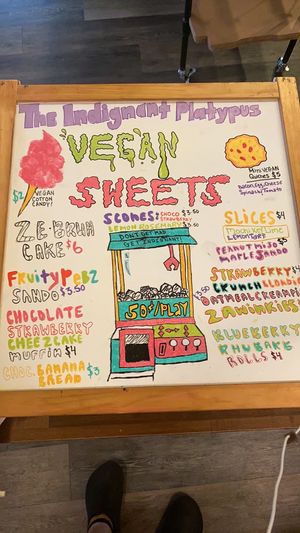 The Indignant Platypus
VEGAN
SHEETS
$2
VEGAN
COTTON
CANDY!
MINI VEGAN
Quiches $5
Bacon, Egg, Cheese
Spinach + Tomato
ZEBRUH
CAKE $6
SCONES:
CHOCO $3.50
STRAWBERRY
LEMON ROSEMARY $3.50
SLICES $4
Lemon
PEANUT MISO $5
MAPLE SANDO
FRUITYPEBZ
SANDO $3.50
DON'T GET MAD
GET INDIGNANT!
50¢/PLAY
CHOCOLATE
STRAWBERRY
CHEEZCAKE
MUFFIN $4
CHOC. BANANA
BREAD $3
STRAWBERRY
CRUNCH BLONDIE
OATMEAL CREAMPIE
ZAWINKIES!
BLUEBERRY
RHUBARB
ROLLS $4